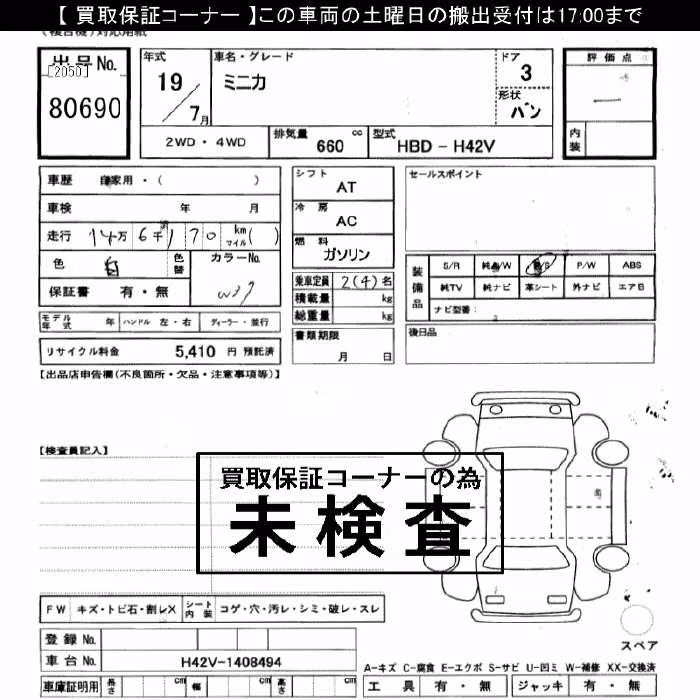 【 買取保証コーナー 】この車両の土曜日の搬出受付は17:00まで
出品No.
[2050]
80690
年式
19
7月
車名・グレード
ミニカ
ドア
3
形状
バン
評価点
一
内装
2WD・4WD
排気量
cc
660
型式
HBD - H42V
車歴 自家用・( )
車検 年 月
走行 14万 6千 170 km マイル( )
色 白 色替
カラーNo.
W37
保証書 有・無
シフト
AT
冷房
AC
燃料
ガソリン
乗車定員 2(4)名
積載量 kg
総重量 kg
書類期限
月 日
セールスポイント
装備品
S/R 純A/W P/S P/W ABS
純TV 純ナビ 革シート 外ナビ エアB
ナビ型番:
後日品
モデル年式 年 ハンドル 左・右 ディーラー・並行
リサイクル料金 5,410 円 預託済
【出品店申告欄(不良箇所・欠品・注意事項等)】
【検査員記入】
買取保証コーナーの為
未検査
FW キズ・トビ石・割レX シート内装 コゲ・穴・汚レ・シミ・破レ・スレ
登録 No.
車台 No. H42V-1408494
車庫証明用 長さ cm 幅 cm 高さ cm
スペア
A-キズ C-腐食 E-エクボ S-サビ U-凹ミ W-補修 XX-交換済
工具 有・無 ジャッキ 有・無